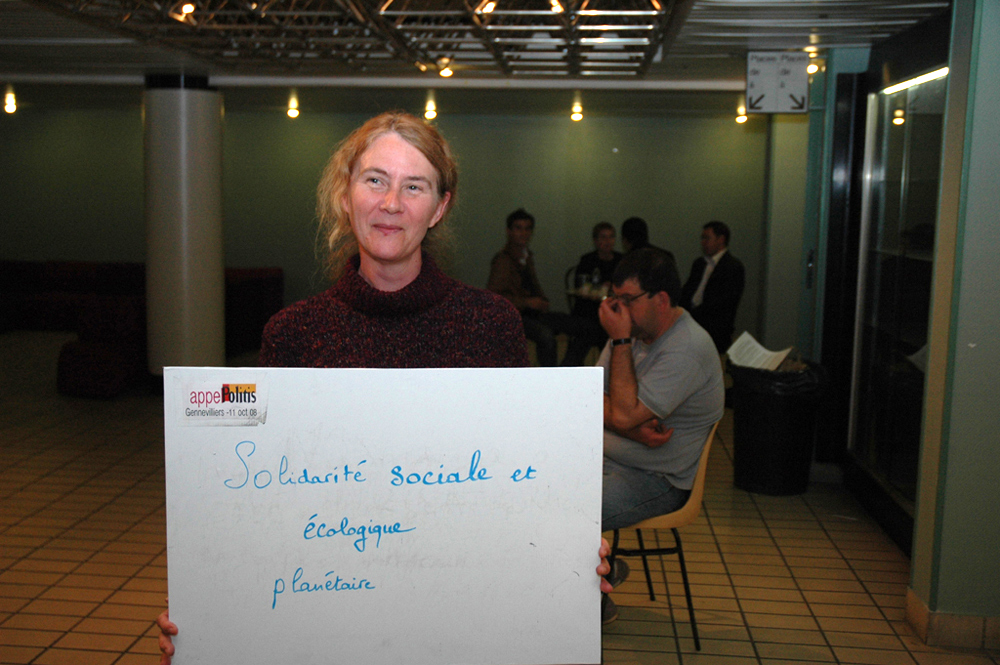 Places Places
de de
à à
appel Politis
Gennevilliers -11 oct 08
Solidarité sociale et
écologique
planétaire